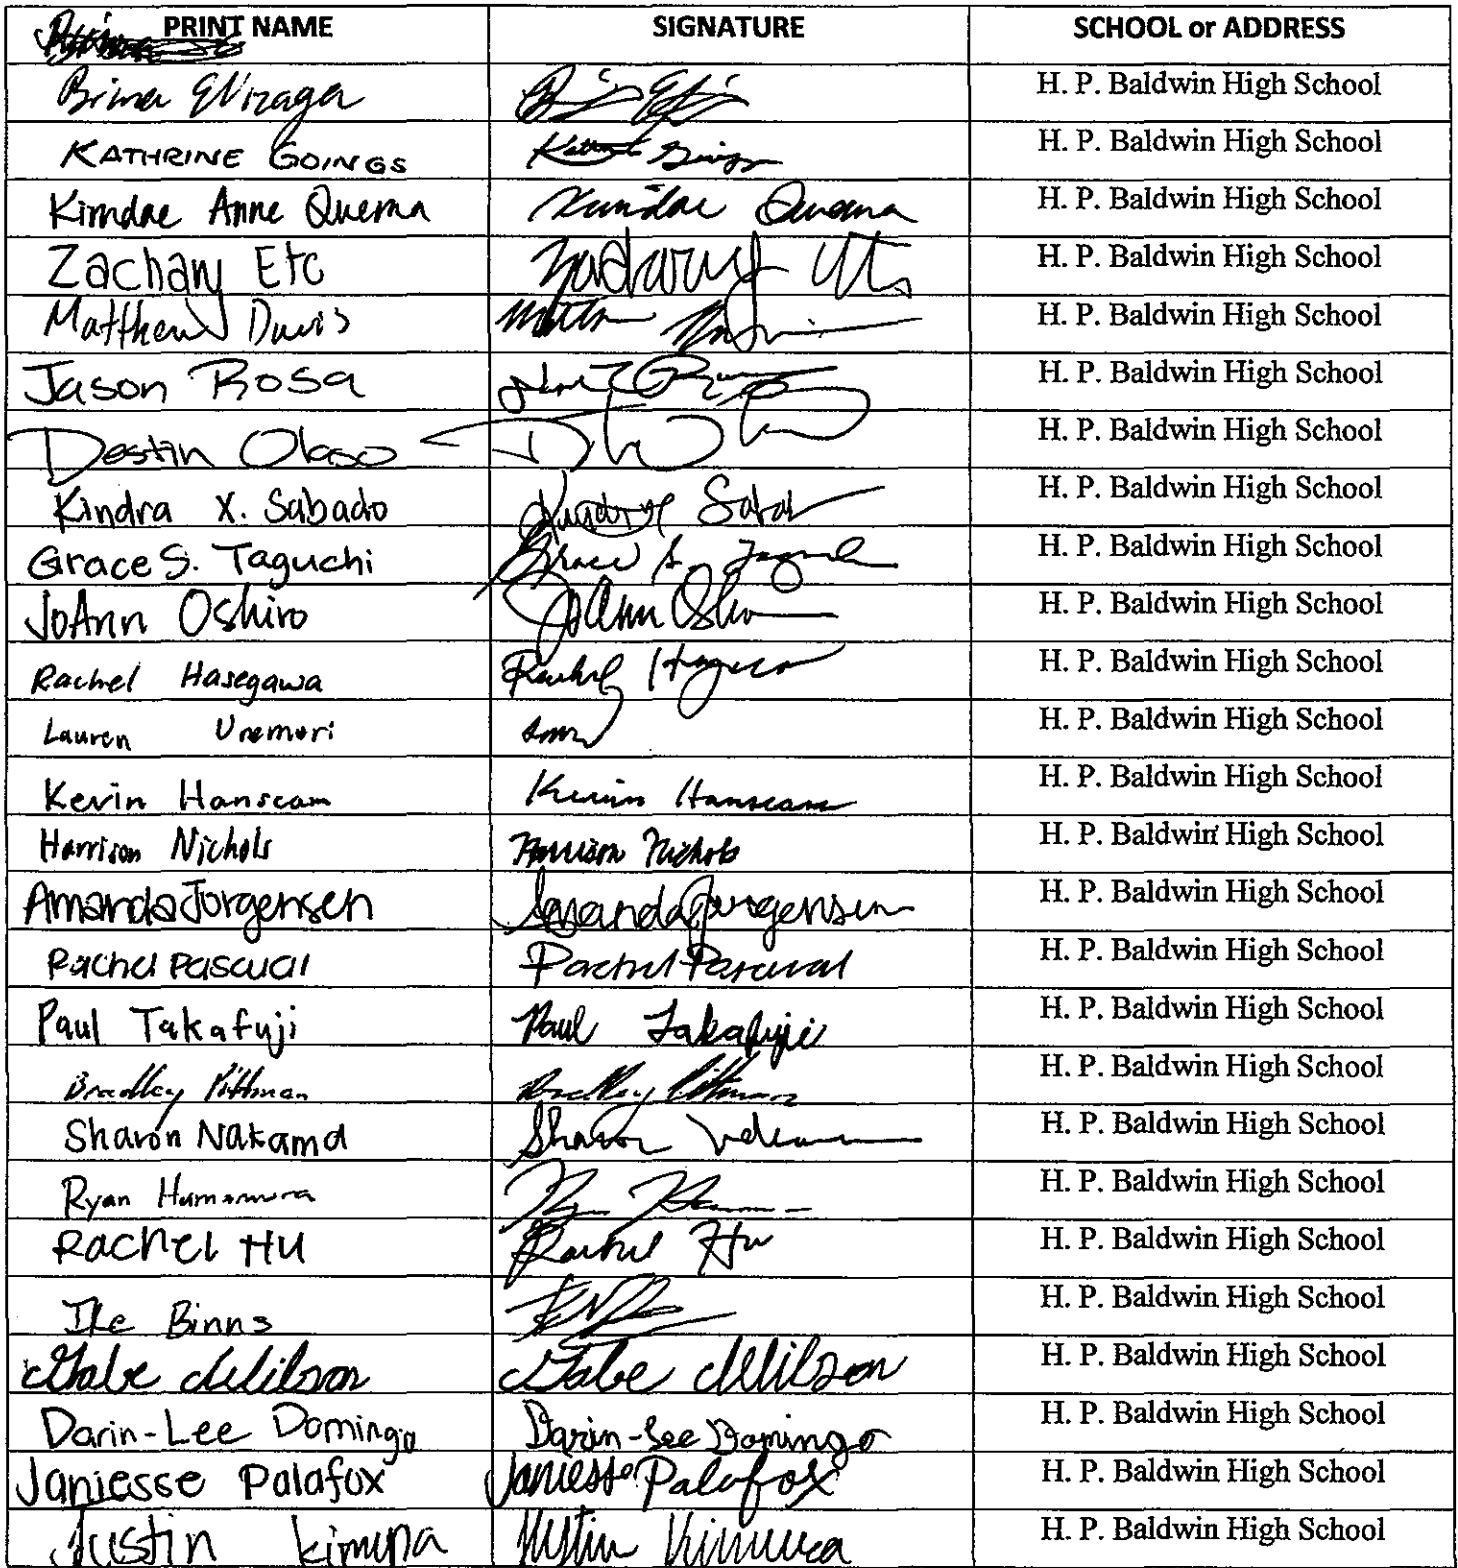 PRINT NAME SIGNATURE SCHOOL or ADDRESS
H. P. Baldwin High School
KATHRINE GOINGS H. P. Baldwin High School
Kimdae Anne Quema Kimdae Quema H. P. Baldwin High School
Zachary Etc H. P. Baldwin High School
Matthew Davis H. P. Baldwin High School
Jason Rosa H. P. Baldwin High School
Destin Olaso H. P. Baldwin High School
Kindra X. Sabado H. P. Baldwin High School
Grace S. Taguchi Grace S. H. P. Baldwin High School
JoAnn Oshiro JoAnn H. P. Baldwin High School
Rachel Hasegawa Rachel H. P. Baldwin High School
Lauren Uremori H. P. Baldwin High School
Kevin Hanscam Kevin Hanscam H. P. Baldwin High School
Harrison Nichols Harrison Nichols H. P. Baldwin High School
Amanda Jorgensen Amanda Jorgensen H. P. Baldwin High School
Rachel Pascual Rachel Pascual H. P. Baldwin High School
Paul Takafuji Paul Takafuji H. P. Baldwin High School
Bradley Pittman Bradley Pittman H. P. Baldwin High School
Sharon Nakama Sharon H. P. Baldwin High School
Ryan Hamamura H. P. Baldwin High School
Rachel Hu Rachel Hu H. P. Baldwin High School
Ike Binns H. P. Baldwin High School
Gabe Wilson Gabe Wilson H. P. Baldwin High School
Darin-Lee Domingo Darin-Lee Domingo H. P. Baldwin High School
Janiesse Palafox Janiesse Palafox H. P. Baldwin High School
Justin Kimura Justin Kimura H. P. Baldwin High School